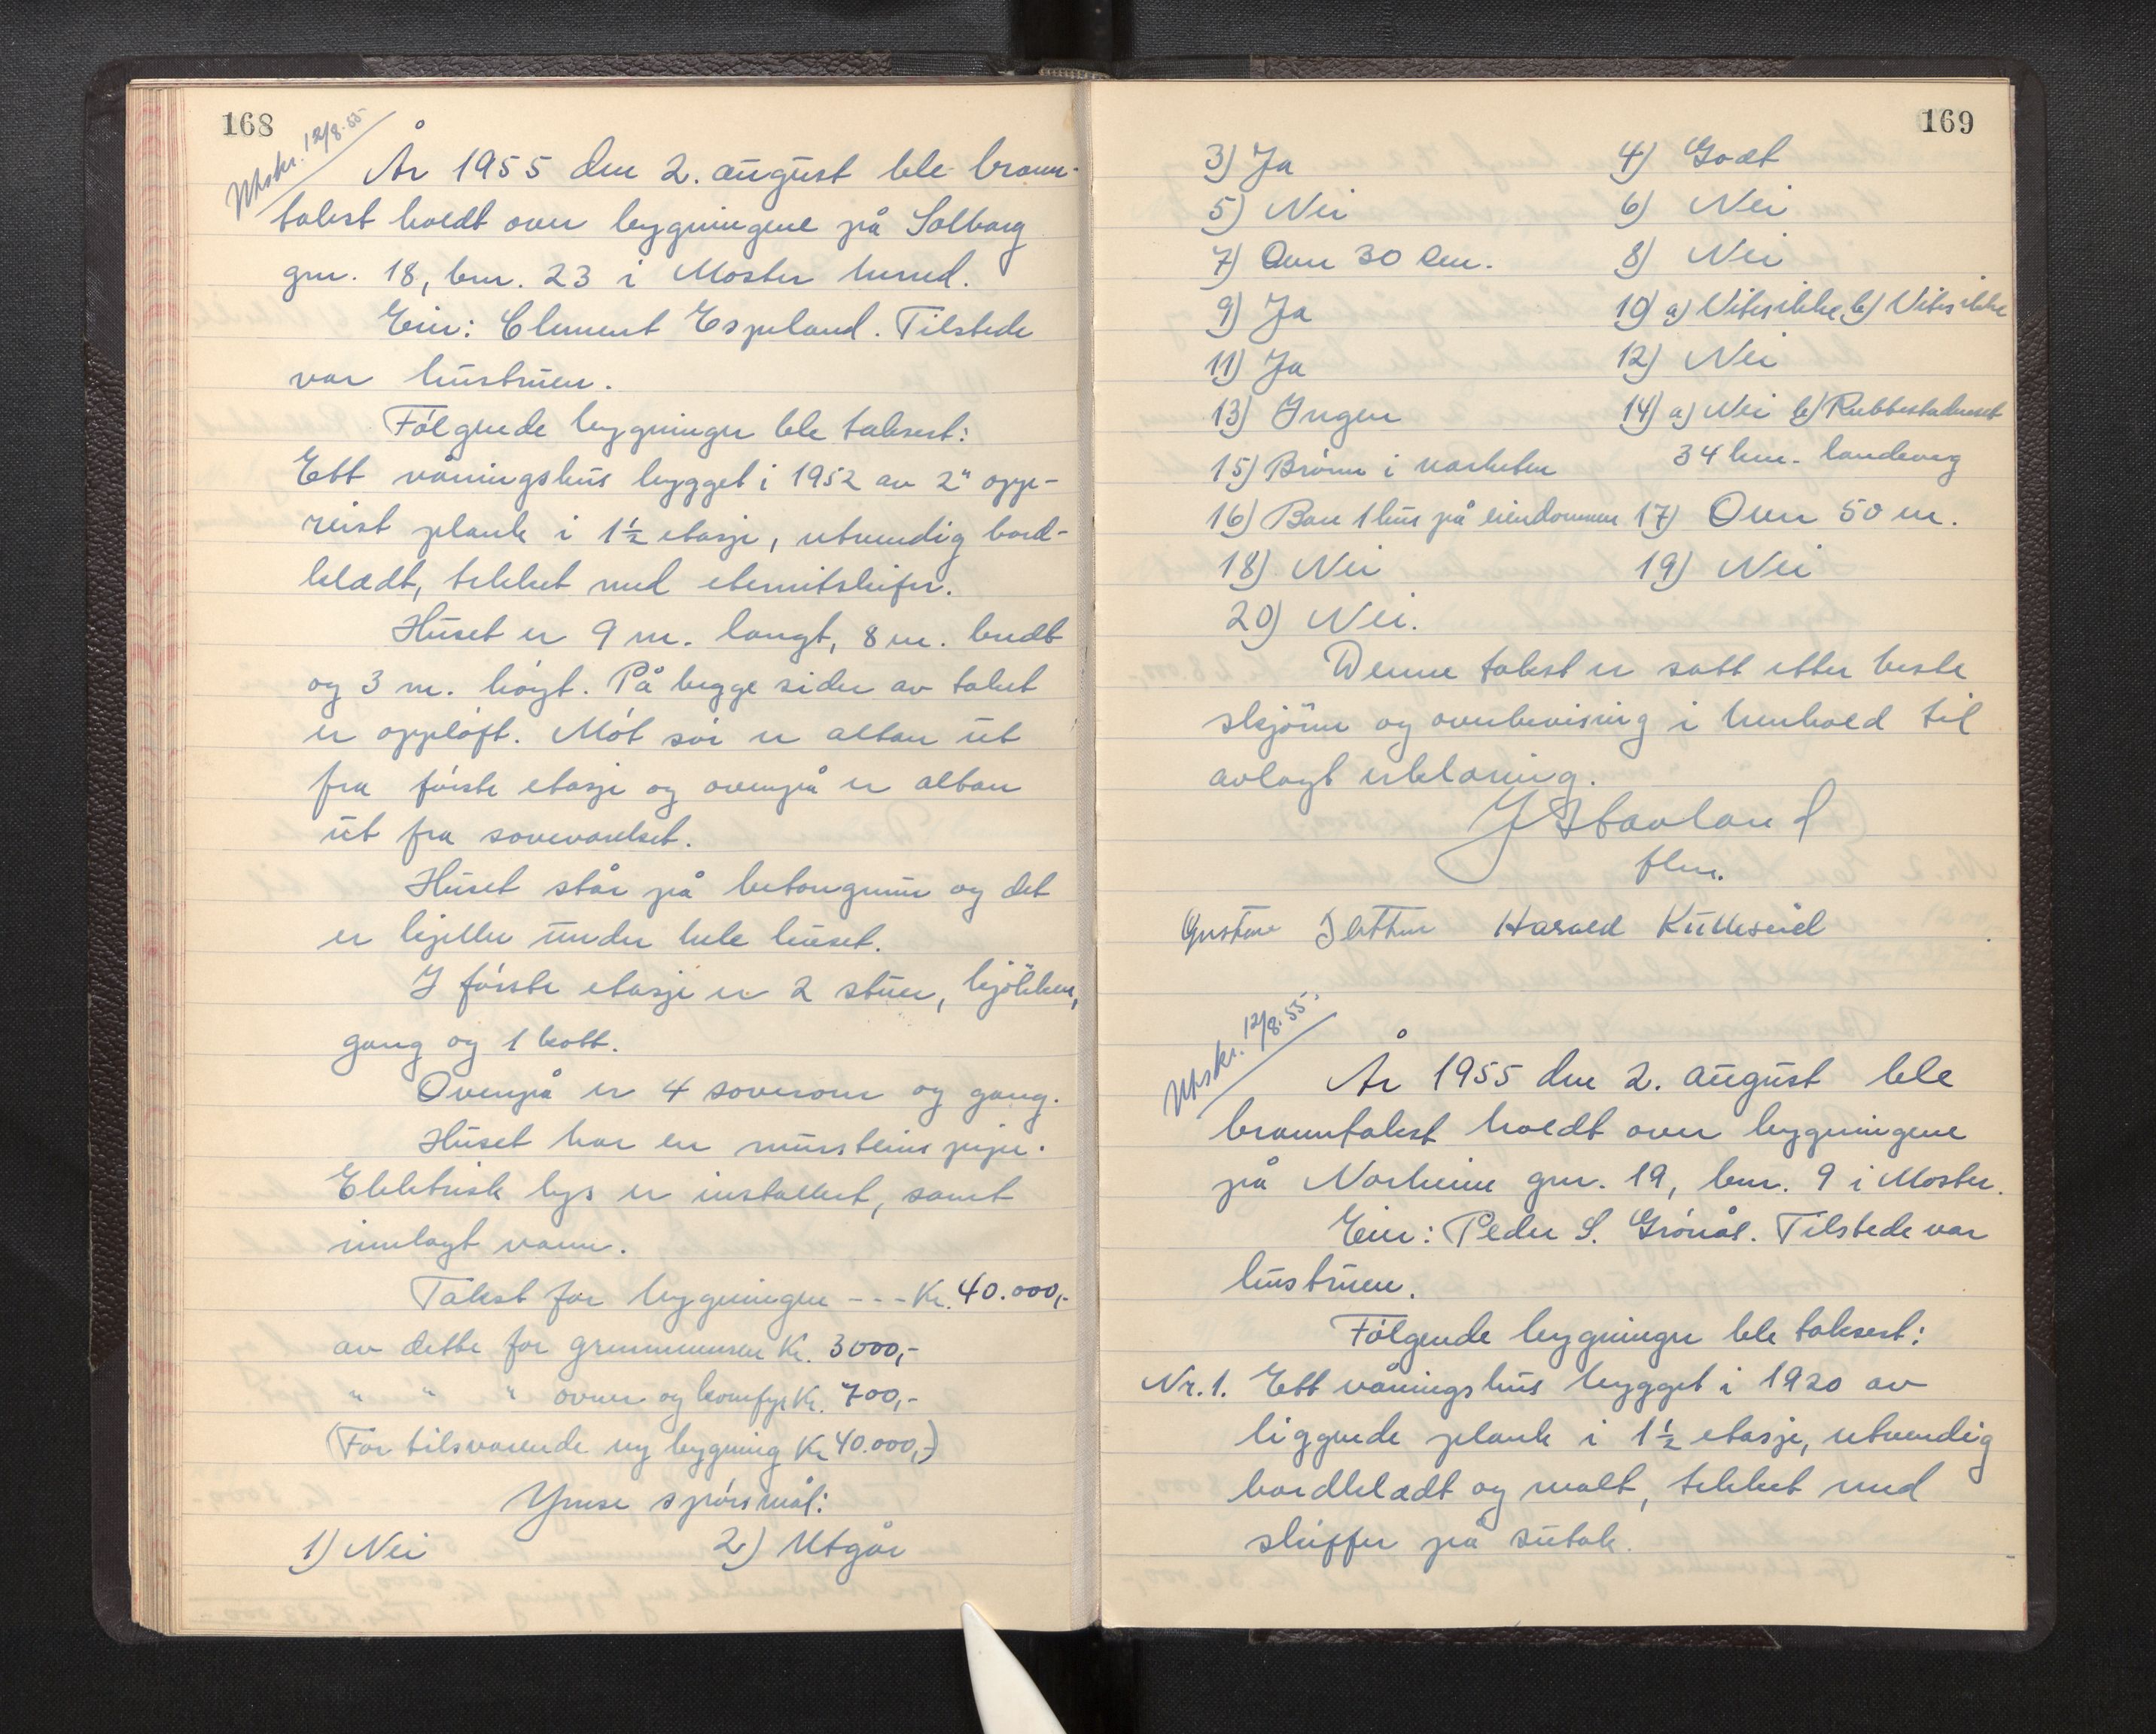 168
Utskr. 12/8.55
År 1955 den 2. august ble brann-
takst holdt over bygningene på Solbarg
gnr. 18, bnr. 23 i Moster herred.
Eier: Clement Espeland. Tilstede
var hustruen.
Følgende bygninger ble taksert:
Ett våningshus bygget i 1952 av 2" opp-
reist plank i 1½ etasje, utvendig bord-
kledt, tekket med eternitskifer.
Huset er 9 m. langt, 8 m. bredt
og 3 m. høgt. På begge sider av taket
er oppløft. Mot sør er altan ut
fra første etasje og ovenpå er altan
ut fra soveværelset.
Huset står på betongmur og det
er kjeller under hele huset.
I første etasje er 2 stuer, kjøkken,
gang og 1 kott.
Ovenpå er 4 soverom og gang.
Huset har en mursteins pipe.
Elektrisk lys er installert, samt
innlagt vann.
Takst for bygningen --- Kr. 40.000,-
av dette for grunnmuren Kr. 3000,-
" " " ovner og komfyr Kr. 700,-
(For tilsvarende ny bygning Kr 40.000,-)
Ymse spørsmål:
1) Nei 2) Utgår
169
3) Ja 4) Godt
5) Nei 6) Nei
7) Over 30 cm. 8) Nei
9) Ja 10) a) Vites ikke b) Vites ikke
11) Ja 12) Nei
13) Ingen 14) a) Nei b) Rubbestadneset
34 km. landeveg
15) Brønn i nærheten
16) Bare 1 hus på eiendommen 17) Over 50 m.
18) Nei 19) Nei
20) Nei.
Denne takst er satt etter beste
skjønn og overbevisning i henhold til
avlagt erklæring.
J Stavland
flm.
Gustav Harald Kulleseid
Utskr. 12/8.55.
År 1955 den 2. august ble
branntakst holdt over bygningene
på Norheim gnr. 19, bnr. 9 i Moster.
Eier: Peder S. Grønås. Tilstede var
hustruen.
Følgende bygninger ble taksert:
Nr. 1. Ett våningshus bygget i 1920 av
liggende plank i 1½ etasje, utvendig
bordkledt og malt, tekket med
skiffer på sutak.